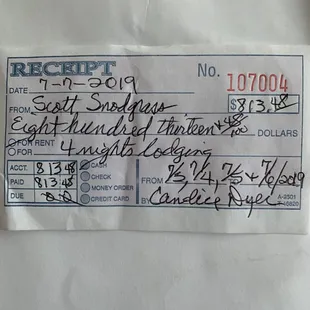 RECEIPT No. 107004
DATE 7-7-2019
FROM Scott Snodgrass $813.48
Eight hundred thirteen + 48/100 DOLLARS
FOR RENT
FOR 4 nights lodging
ACCT. 813 48 CASH
PAID 813 48 CHECK
DUE 0-0 MONEY ORDER
CREDIT CARD
FROM 7/3, 7/4, 7/5 + 7/6/2019
BY Candice Dyer